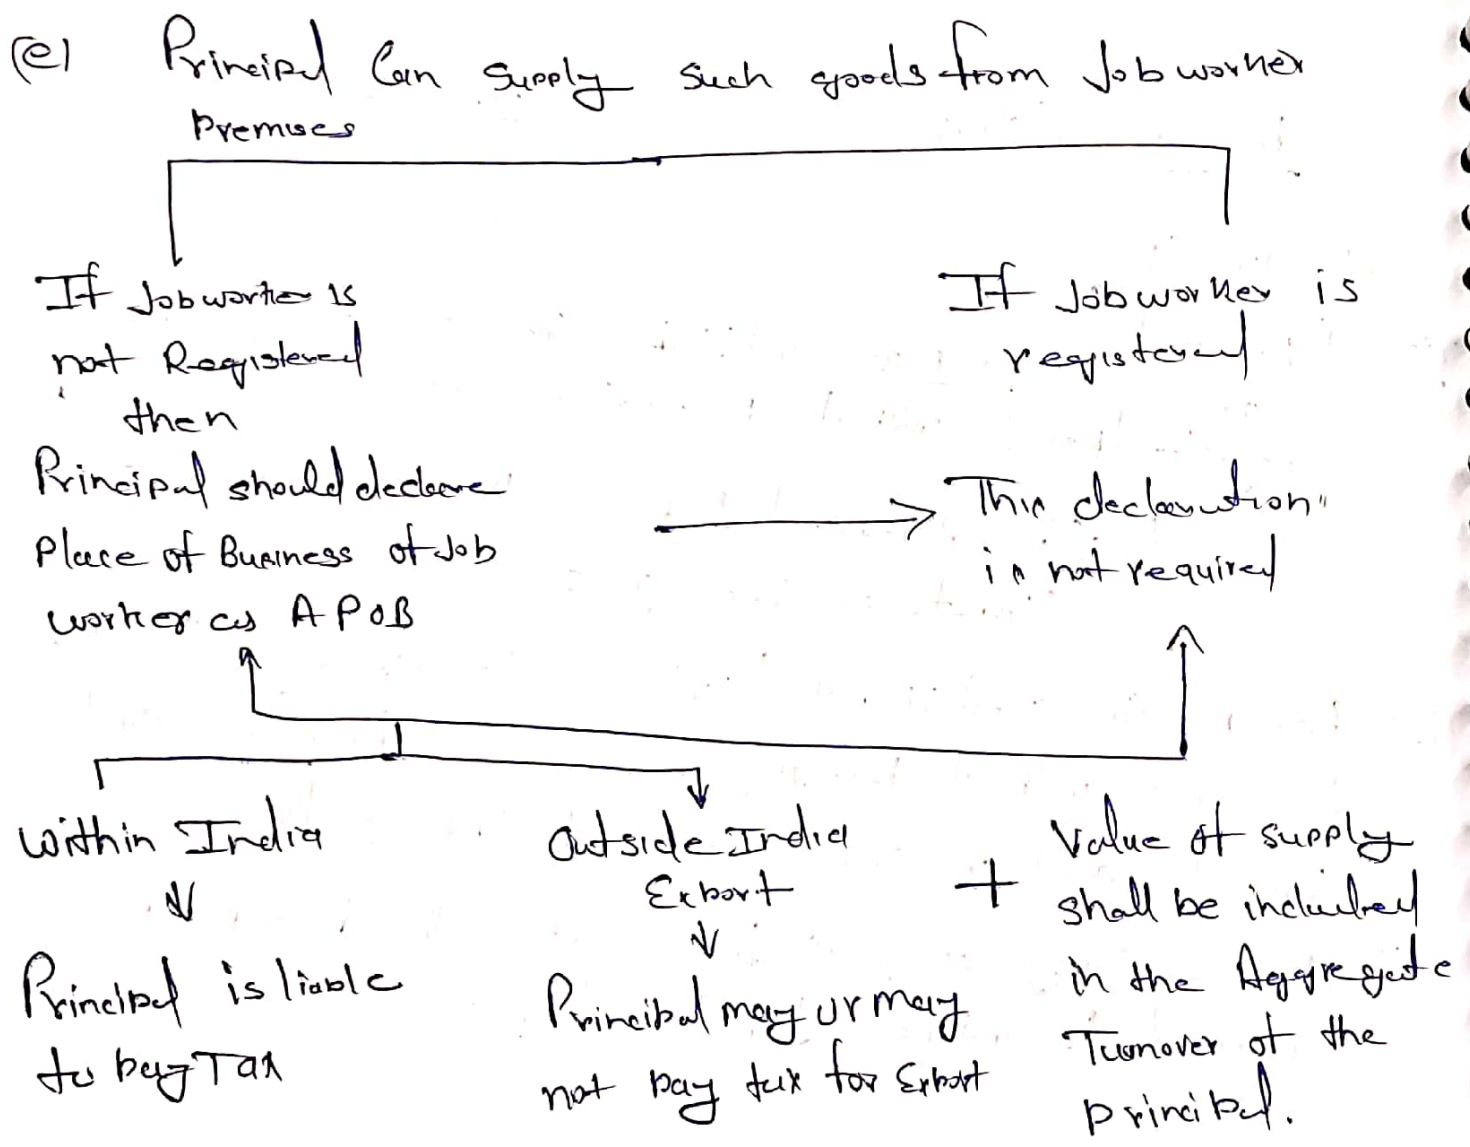 (e) Principal Can supply such goods from Jobworker
premises
If Jobworker is
not Registered
then
Principal should declare
Place of Business of Job
worker as APOB
If Jobworker is
registered
This declaration
is not required
within India
Principal is liable
to pay Tax
Outside India
Export
Principal may or may
not pay tax for Export
+
Value of supply
shall be included
in the Aggregate
Turnover of the
principal.